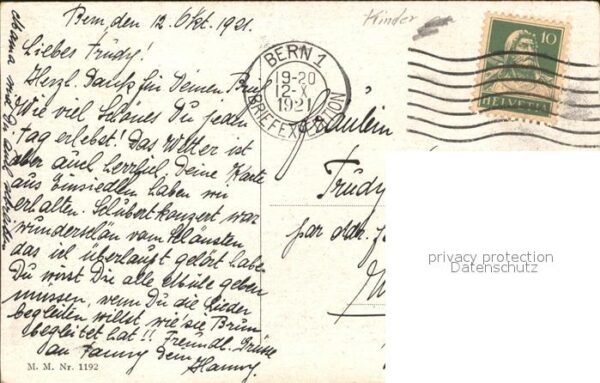 Bern, den 12. Okt. 1921.
Liebes Trudy!
Herzl. Dank für Deinen Brief
Wie viel Schönes Du jeden
Tag erlebst! Das Wetter ist
aber auch herrlich. Deine Karte
aus Einsiedeln haben wir
erhalten. Schubertkonzert war
wunderschön vom Schönsten
das ich überhaupt gehört habe
Du wirst Dir alle Mühe geben
müssen, wenn Du die Lieder
begleiten willst wie sie Brun
begleitet hat!! Freundl. Grüsse
an Fanny Dein
Hanny.
Mama
M. M. Nr. 1192
Kinder
BERN 1
19-20
12-X
1921
BRIEFEXPEDITION
10
HELVETIA
Fräulein
Trudy
par adr.
privacy protection
Datenschutz